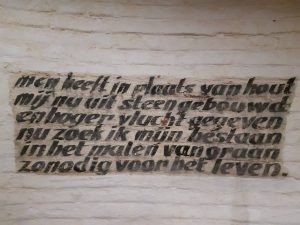 men heeft in plaats van hout
mij nu uit steen gebouwd
en hoger vlucht gegeven
nu zoek ik mijn bestaan
in het malen van graan
zo nodig voor het leven.